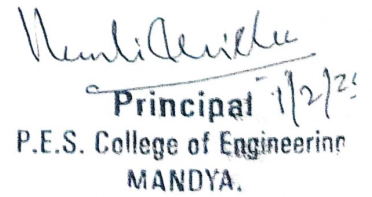 Principal 1/2/2
P.E.S. College of Engineering
MANDYA.